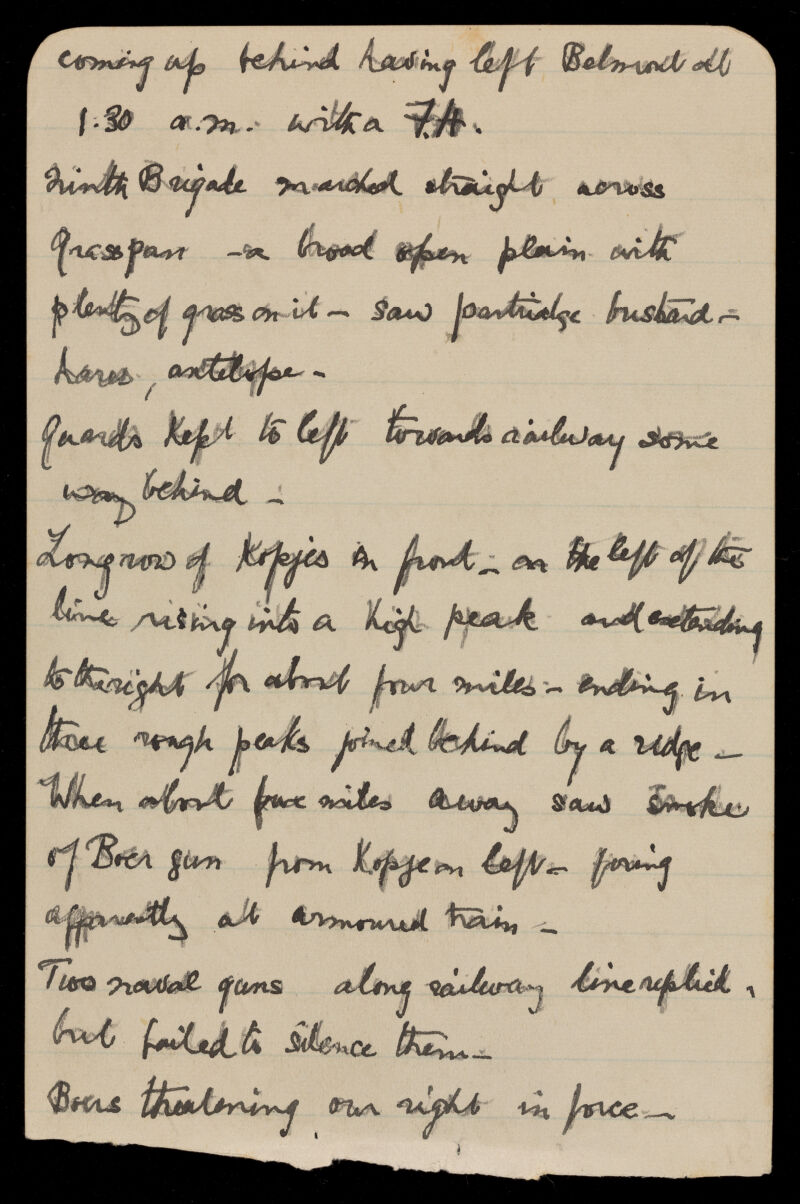 coming up behind having left Belmont at
1.30 a.m. with a F.H.
Ninth Brigade marched straight across
Grasspan - a broad open plain with
plenty of grass on it - saw partridge bustard -
hares, antelope -
Guards kept to left towards railway some
way behind -
Long row of Kopjes in front - on the left of the
line rising into a high peak and extending
to the right for about four miles - ending in
three rough peaks joined behind by a ridge -
When about five miles away saw smoke
of Boer gun from Kopje on left - firing
apparently at armoured train -
Two naval guns along railway line replied,
but failed to silence them -
Boers threatening our right in force -